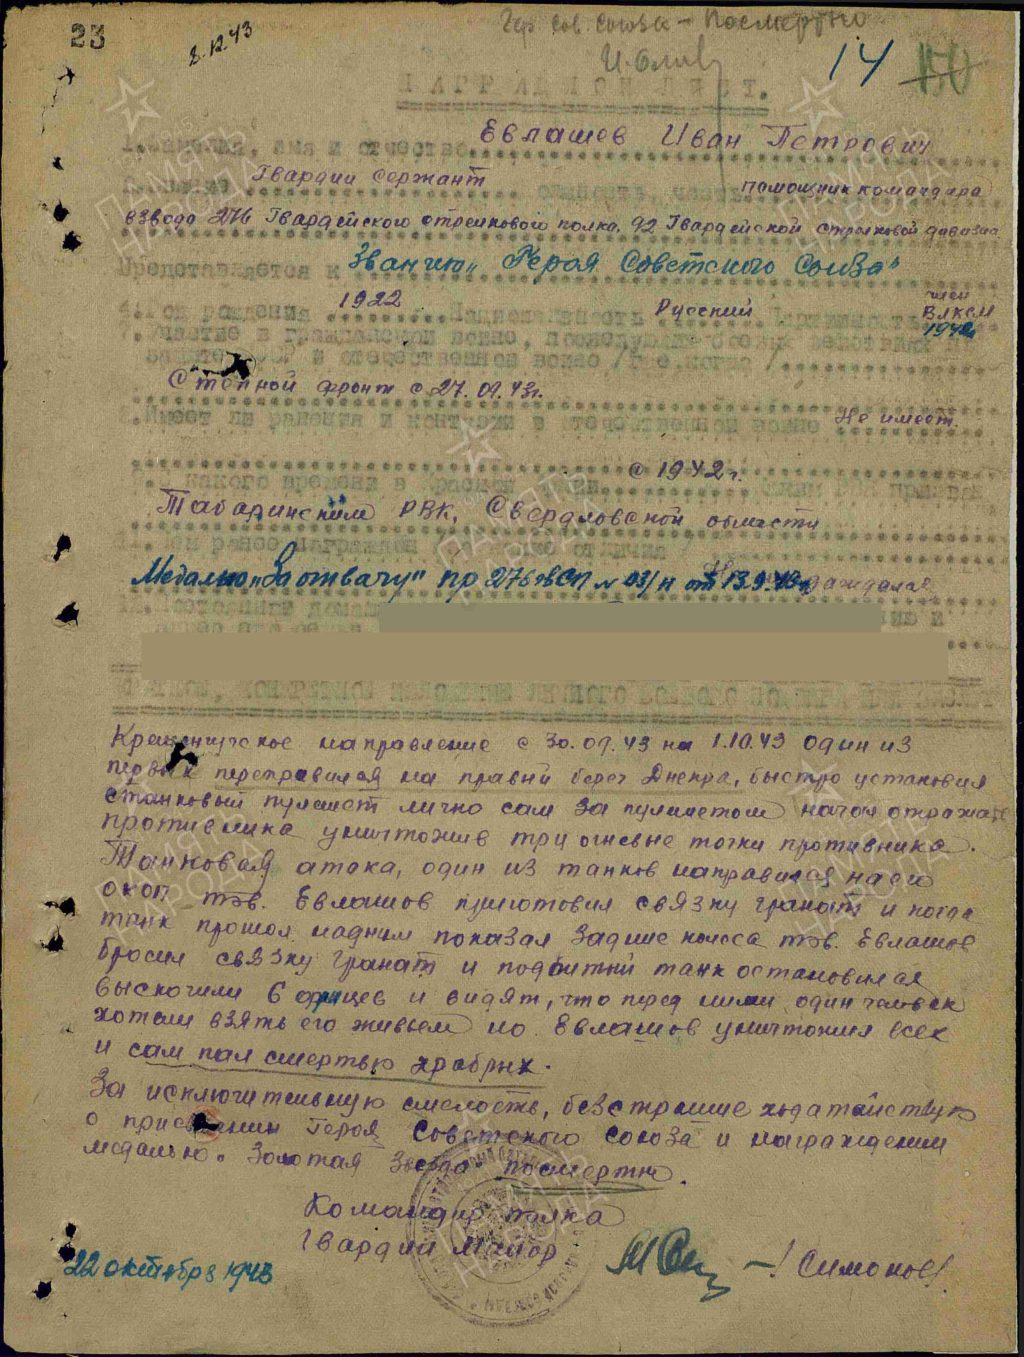 23
8.12.43
Гер Сов. Союза - Посмертно
14
150
НАГРАДНОЙ ЛИСТ.
1. Фамилия, имя и отчество Евлашев Иван Петрович
Гвардии сержант помошник командара
взвода 276 Гвардейского стрелкового полка, 92 Гвардейской стрелковой
Представляется к Званию „Героя Советского Союза"
Год рождения 1922 Национальность Русский член
ВЛКСМ
1942
Участие в гражданской войне, последующих боевых действиях по
защите СССР и отечественной войне
Степной фронт с 27.09.43г.
8. Имеет ли ранения и контузии в отечественной войне Не имеет.
С какого времени в Красной с 1942 г.
Табаринским РВК, Свердловской области
Чем ранее награжден
Медалью „За отвагу" пр 276 гвсп № 03/н от 13.9.43г
12. Постоянный
КРАТКОЕ, КОНКРЕТНОЕ ИЗЛОЖЕНИЕ ЛИЧНОГО БОЕВОГО ПОДВИГА ИЛИ ЗАСЛУГ
Кременчугское направление с 30.09.43 на 1.10.43 один из
первых переправился на правый берег Днепра, быстро установил
станковый пулемет лично сам за пулиметом начал отражать
противника уничтожив три огневые точки противника.
Танковая атака, один из танков направился на его
окоп тов. Евлашов приготовил связку гранат и когда
танк прошол надним показал задние колеса тов. Евлашов
бросил связку гранат и подбитый танк остановился
выскочили 6 фрицев и видят, что перед ними один человек
хотели взять его живьем но Евлашов уничтожил всех
и сам пал смертью храбрых.
За исключительную смелость, безстрашие ходатайствую
о присвоении Героя Советского Союза и награждении
медалью. Золотая Звезда посмертно.
Командир полка
Гвардии Майор
/Симонов/
22 октября 1943
ПАМЯТЬ
НАРОДА
ПАМЯТЬ
НАРОДА
ПАМЯТЬ
НАРОДА
ПАМЯТЬ
НАРОДА
ПАМЯТЬ
НАРОДА
ПАМЯТЬ
НАРОДА